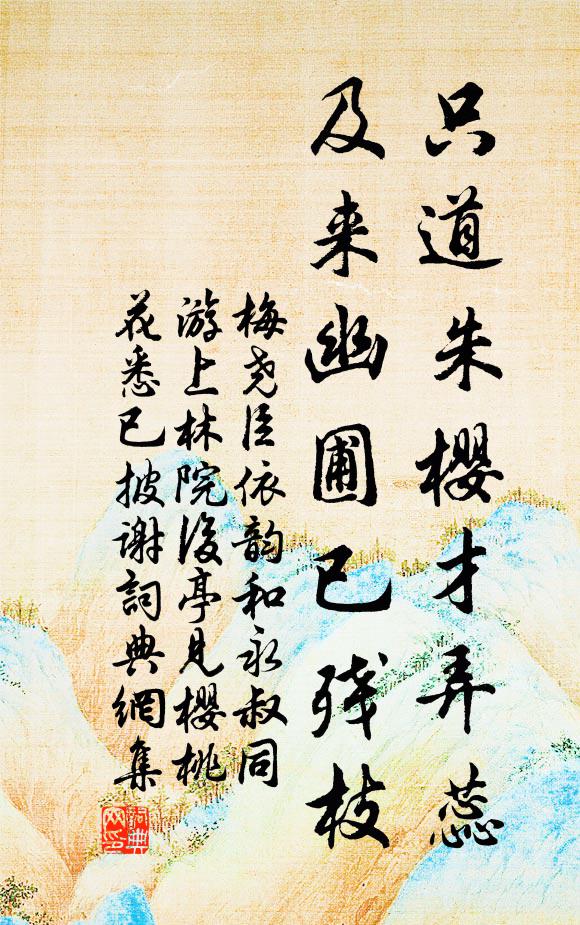 只道朱樱才弄蕊
及来幽圃已残枝
梅尧臣依韵和永叔同
游上林院後亭见樱桃
花悉已披谢詞典網集
詞典網印